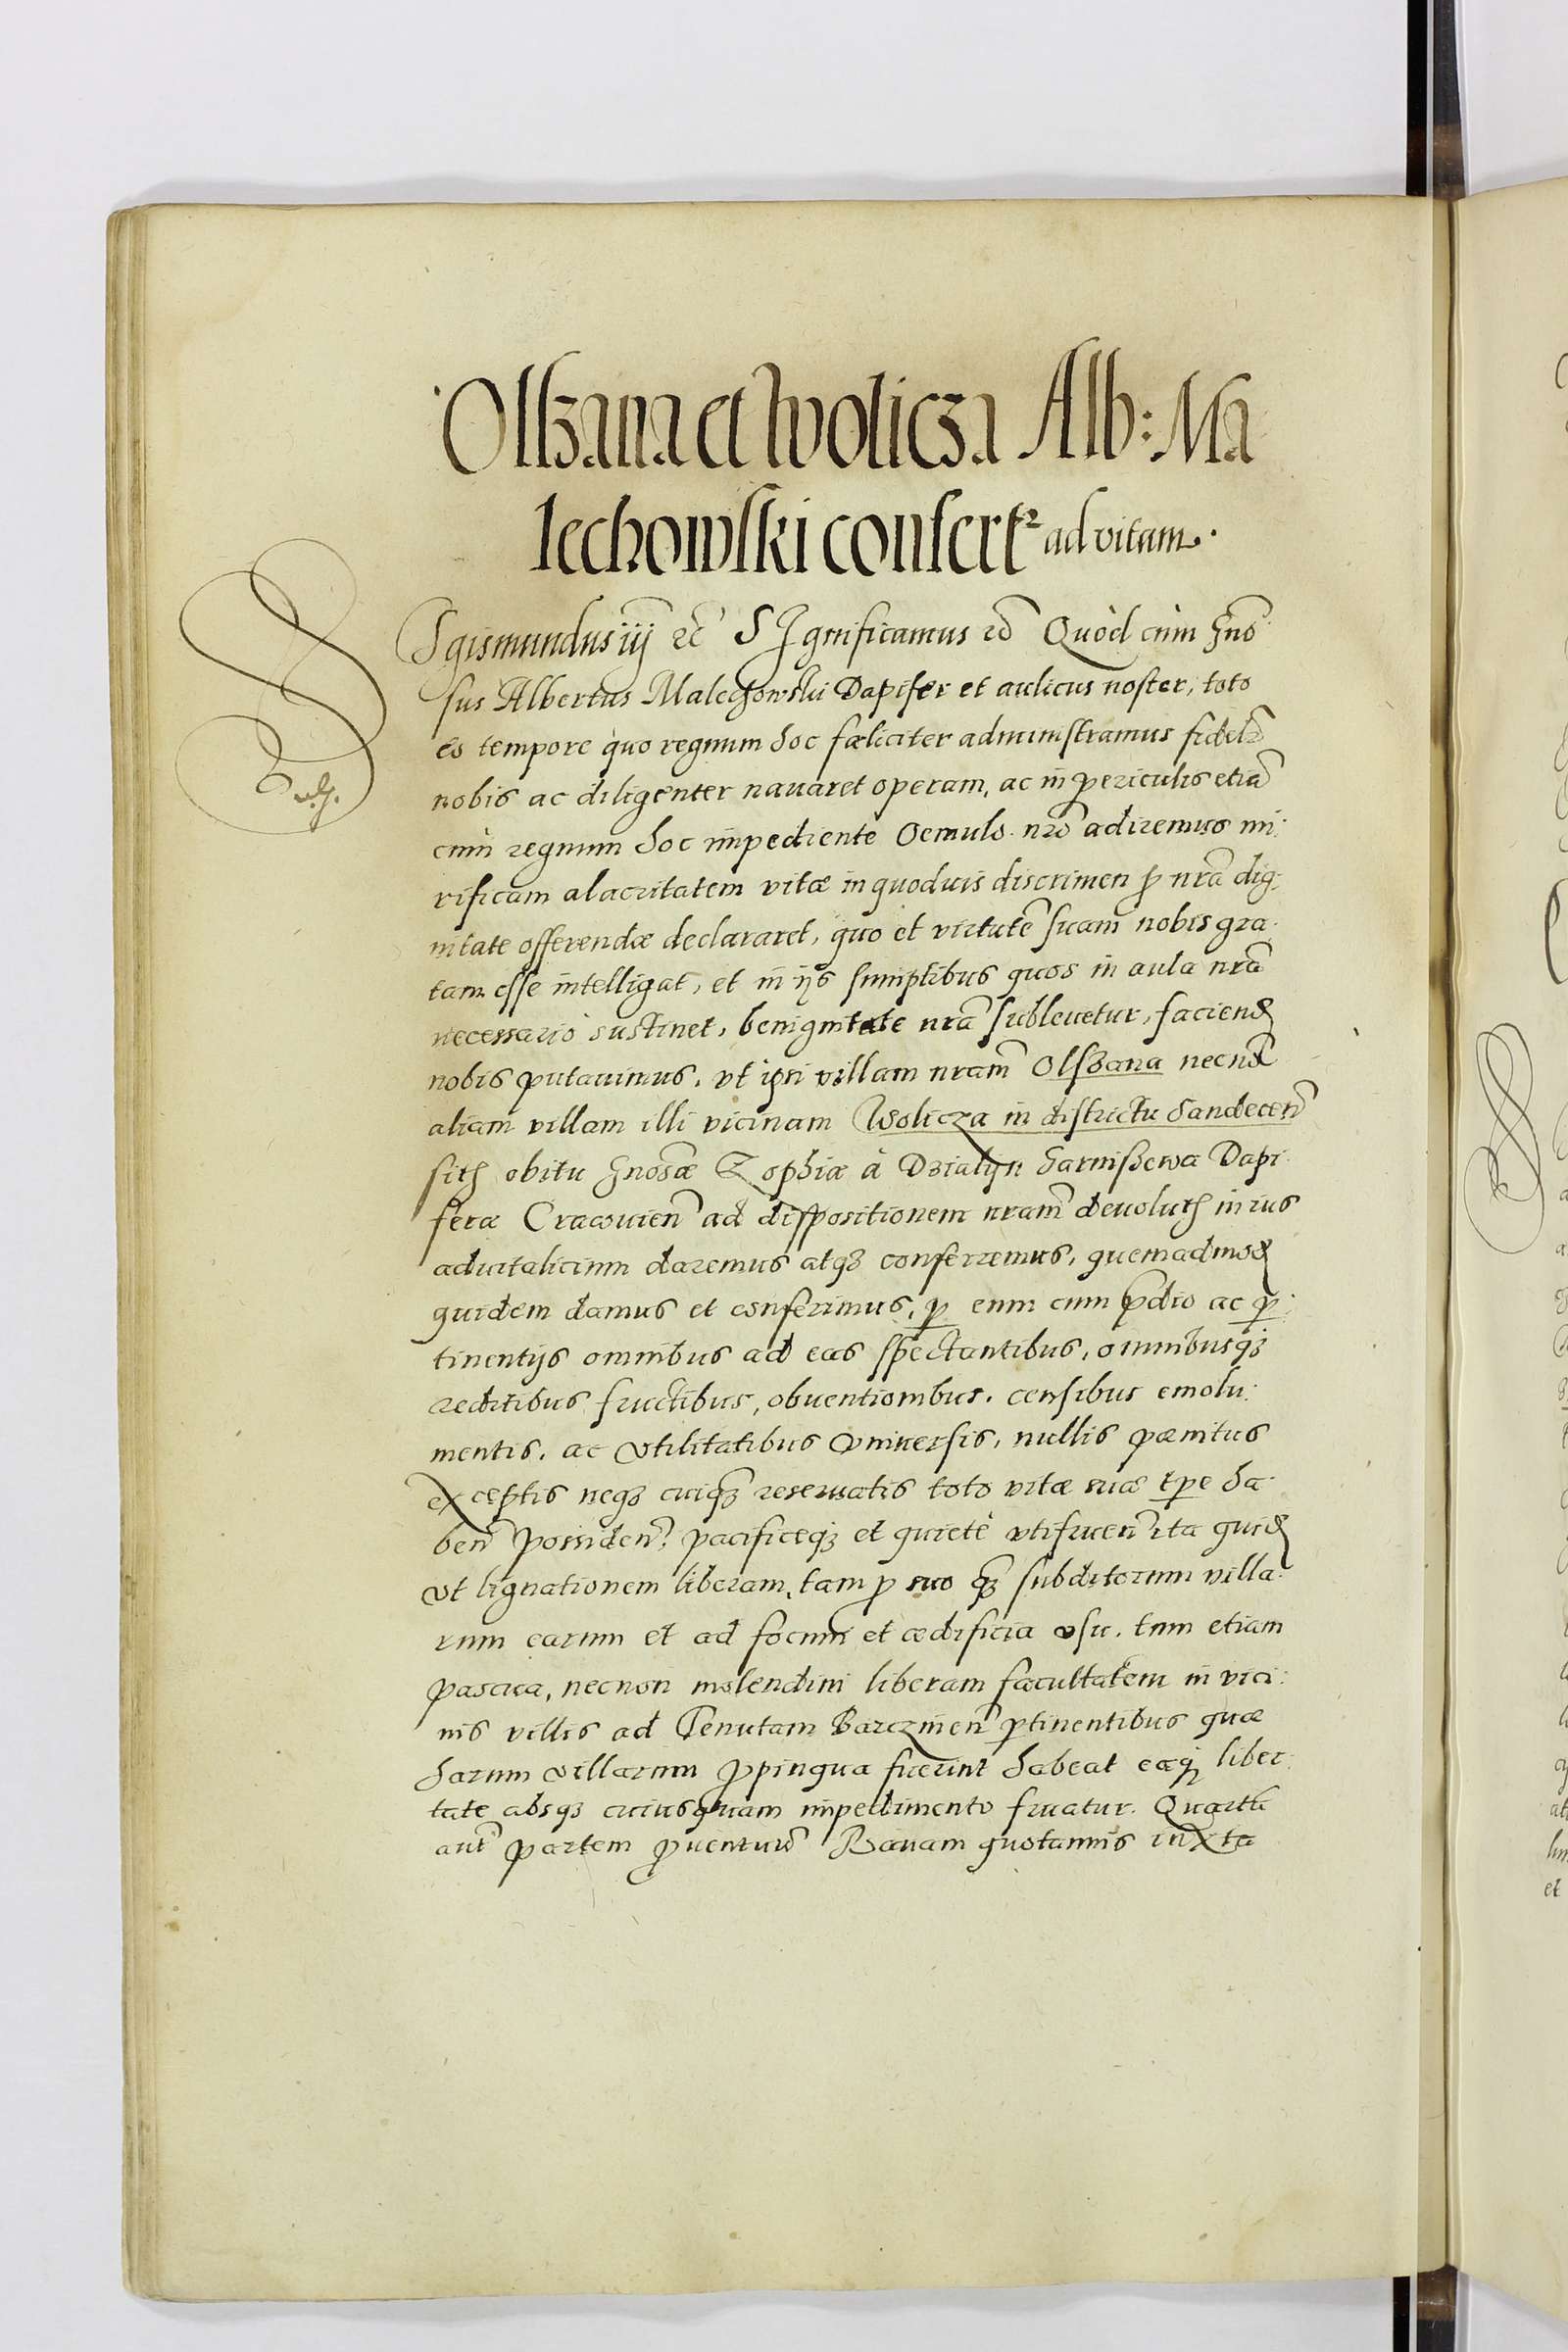 Olszana et Wolicza Alb: Ma
lechowski confert² ad vitam.
Sigismundus iij etc̃ SIgnificamus etc̃ Quòd cùm Gnõ
sus Albertus Malechowski Dapifer et aulicus noster, toto
eo tempore quo regnum hoc fæliciter administramus fidelẽ
nobis ac diligenter nauaret operam, ac in periculis etiã
cùm regnum hoc impediente Oemulo nr̃o adiremus mi:
rificam alacritatem vitæ in quoduis discrimen p nr̃a dig:
nitate offerendæ declararet, quo et virtutẽ suam nobis gra:
tam esse intelligat, et in ijs sumptibus quos in aula nr̃a
necessariò sustinet, benignitate nr̃a subleuetur, faciend
nobis putauimus, vt ipsi villam nram̃ Olszana necnõ
aliam villam illi vicinam Wolicza in districtu Sandeceñ
sitã obitu Gnosæ Zophiæ à Dzialyn Garnischewa Dapi
feræ Cracouieñ ad dispositionem nram̃ deuolutã in ius
aduitalicium daremus atq3 conferremus, quemadmod
quidem damus et conferimus, p eum cum prædio ac p:
tinentijs omnibus ad eas spectantibus, omnibusq3
reditibus fructibus, obuentionibus, censibus emolu:
mentis, ac vtilitatibus vniuersis, nullis pænitus
exceptis neq3 cuiq3 reseruatis toto vitæ suæ tpe ha:
beñ possideñ pacificeq3 et quietè vtifrueñ ita quid
vt lignationem liberam, tam p suo q3 subditorum villa:
rum earum et ad focum et ædificia vsu, tum etiam
pascua, necnon molendini liberam facultatem in vici:
nis villis ad Tenutam Barczineñ ptinentibus quæ
harum villarum ppinqua fuerint habeat eaq3 liber:
tate absq3 cuiusquam impedimento fruatur. Quartã
aut̃ partem puentuũ Rauam quotannis iuxta